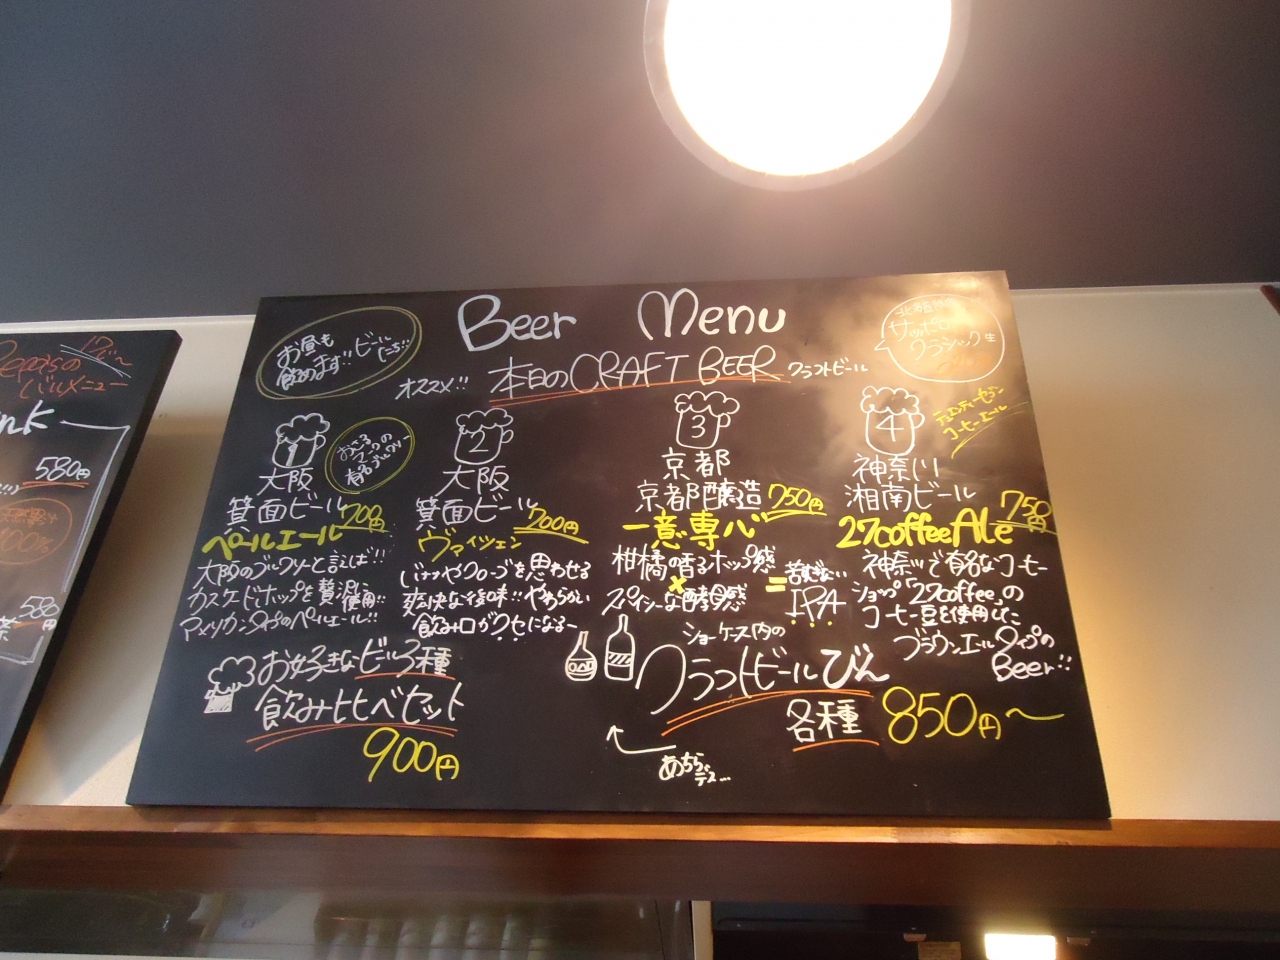 Beer Menu
お昼も
飲めます!! ビール
たち!!
オススメ!! 本日のCRAFT BEER クラフトビール
サッポロ
クラシック 生
1
大阪
箕面ビール 700円
ペールエール
大阪のブルワリーと言えば!!
カスケードホップを贅沢に
使用!!
アメリカンタイプのペールエール!!
おさる
マークの
有名ブルワリー
2
大阪
箕面ビール 700円
ヴァイツェン
バナナやクローブを思わせる
爽快な後味!! やわらかい
飲み口がクセになるー
3
京都
京都醸造 750円
一意専心
柑橘の香るホップ感
×
スパイシーな酵母感
= 苦すぎない
IPA
4
神奈川
湘南ビール 750円
27coffeeAle
コーヒーエール
神奈川で有名なコーヒー
ショップ「27coffee」の
コーヒー豆を使用した
ブラウンエールタイプの
Beer!!
お好きなビール3種
飲み比べセット
900円
ショーケース内の
クラフトビールびん
各種 850円～
あちらデス...
17:00～
バルメニュー
nk
580円
580円